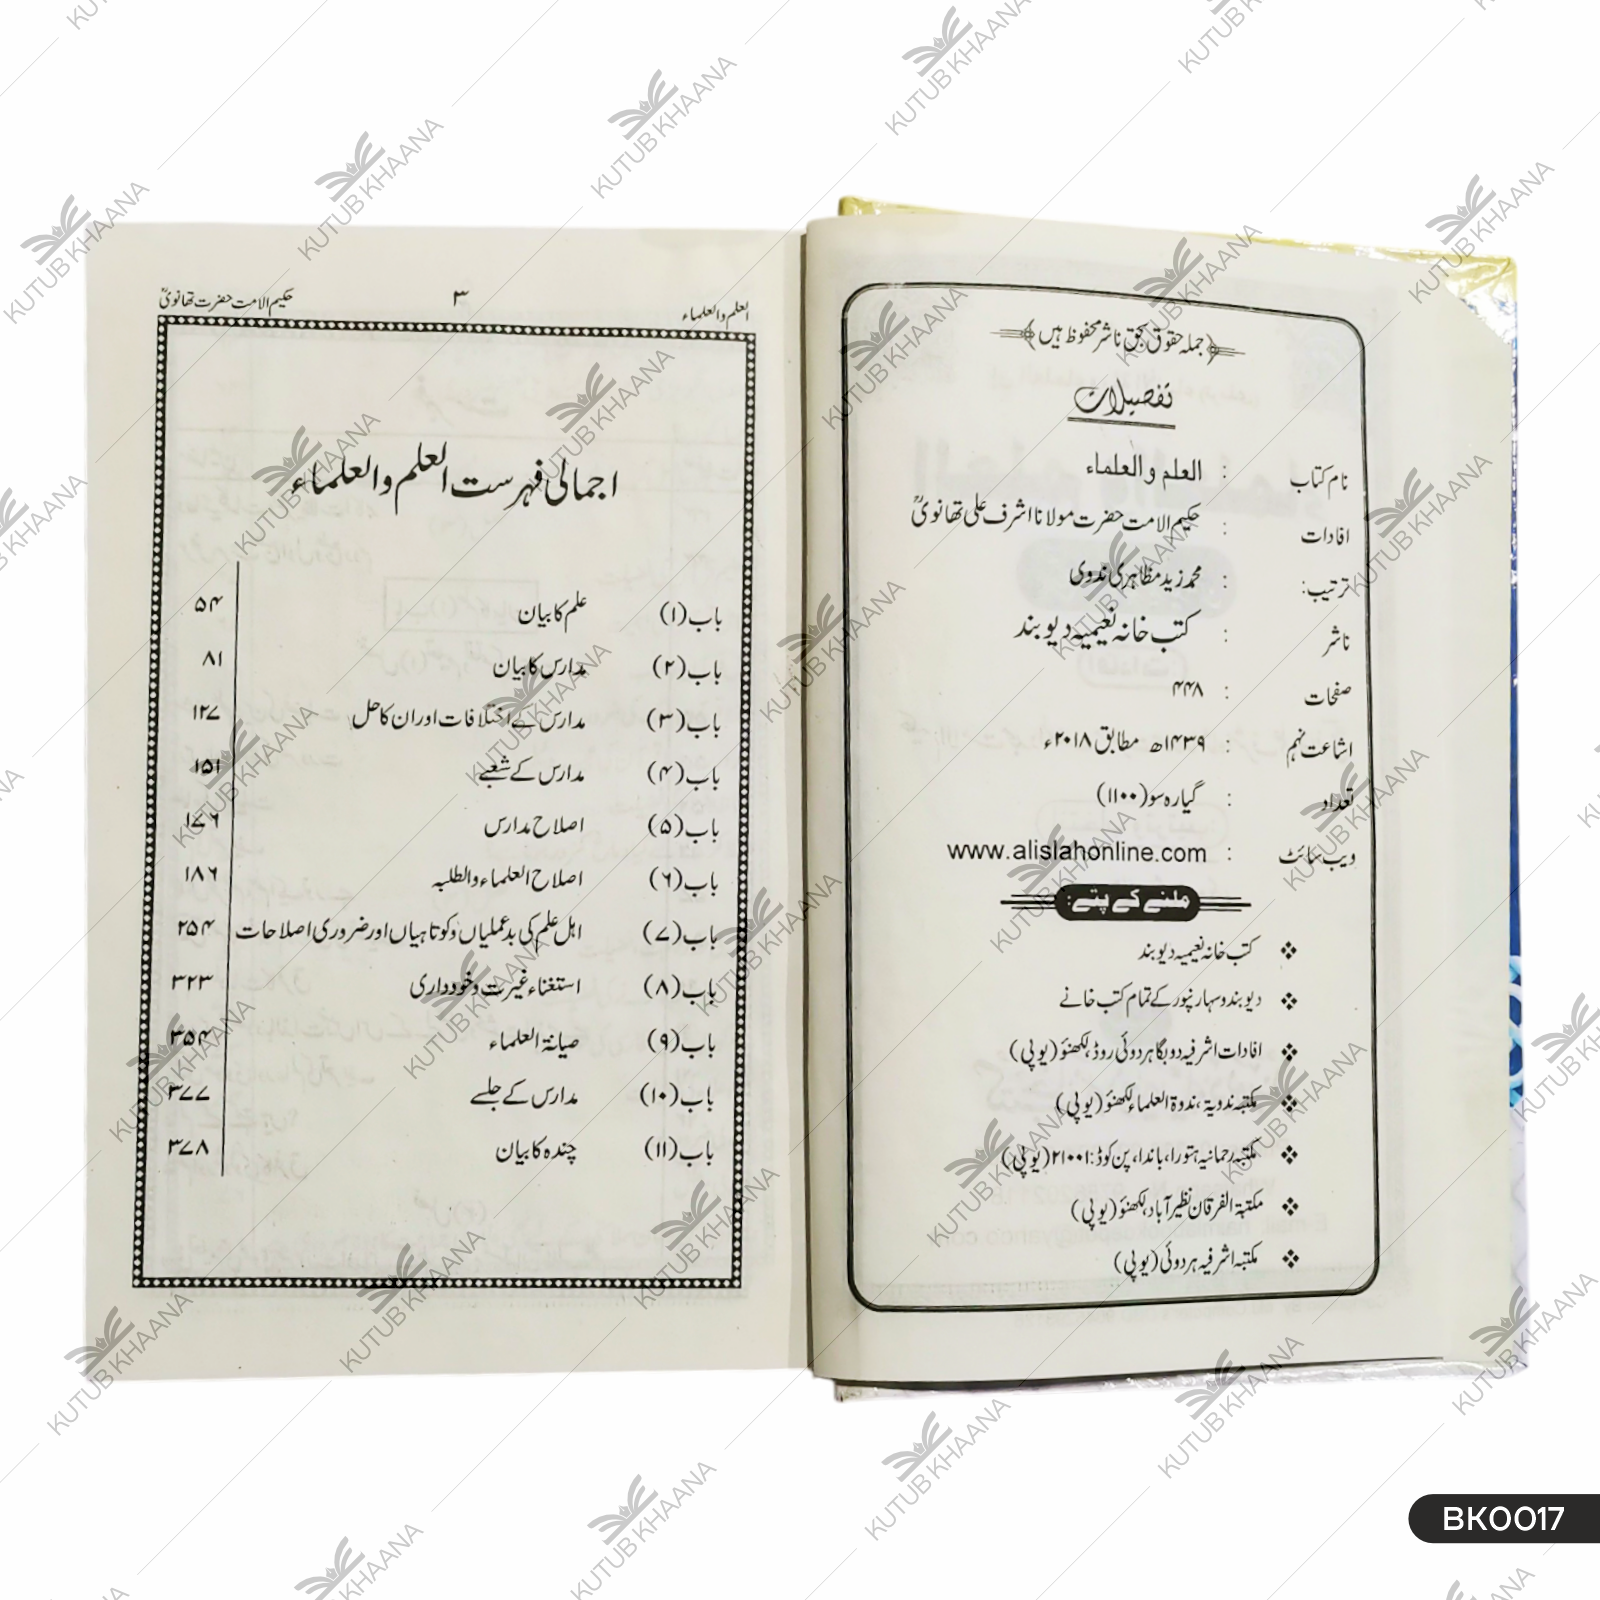 جملہ حقوق بحق ناشر محفوظ ہیں
تفصیلات
نام کتاب : العلم والعلماء
افادات : حکیم الامت حضرت مولانا اشرف علی تھانویؒ
ترتیب: : محمد زید مظاہری ندوی
ناشر : کتب خانہ نعیمیہ دیوبند
صفحات : ۴۴۸
اشاعت نہم : ۱۴۳۹ھ مطابق ۲۰۱۸ء
تعداد : گیارہ سو (۱۱۰۰)
ویب سائٹ : www.alislahonline.com
ملنے کے پتے:
❖ کتب خانہ نعیمیہ دیوبند
❖ دیوبند وسہارنپور کے تمام کتب خانے
❖ افادات اشرفیہ دوبگا ہردوئی روڈ، لکھنؤ (یوپی)
❖ مکتبہ ندویہ، ندوۃ العلماء لکھنؤ (یوپی)
❖ مکتبہ رحمانیہ ہتورا، باندا، پن کوڈ: ۲۱۰۰۱ (یوپی)
❖ مکتبۃ الفرقان نظیر آباد، لکھنؤ (یوپی)
❖ مکتبہ اشرفیہ ہردوئی (یوپی)
العلم والعلماء ۳ حکیم الامت حضرت تھانویؒ
اجمالی فہرست العلم والعلماء
باب (۱) علم کا بیان ۵۴
باب (۲) مدارس کا بیان ۸۱
باب (۳) مدارس کے اختلافات اور ان کا حل ۱۲۷
باب (۴) مدارس کے شعبے ۱۵۱
باب (۵) اصلاح مدارس ۱۷۶
باب (۶) اصلاح العلماء والطلبہ ۱۸۶
باب (۷) اہل علم کی بدعملیاں وکوتاہیاں اور ضروری اصلاحات ۲۵۴
باب (۸) استغناء غیرت وخودداری ۳۲۳
باب (۹) صیانۃ العلماء ۳۵۴
باب (۱۰) مدارس کے جلسے ۳۷۷
باب (۱۱) چندہ کا بیان ۳۷۸
KUTUB KHAANA
BK0017